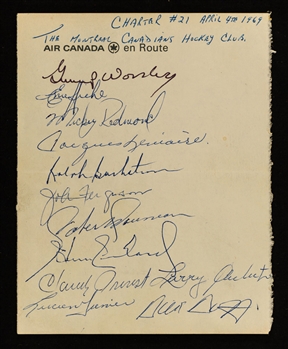 CHARTER #21 APRIL 4TH 1969
THE MONTREAL CANADIANS HOCKEY CLUB.
AIR CANADA en Route
Gump Worsley
Mickey Redmond
Jacques Lemaire
Ralph Backstrom
John Ferguson
Claude Provost Larry
Lucien Grenier